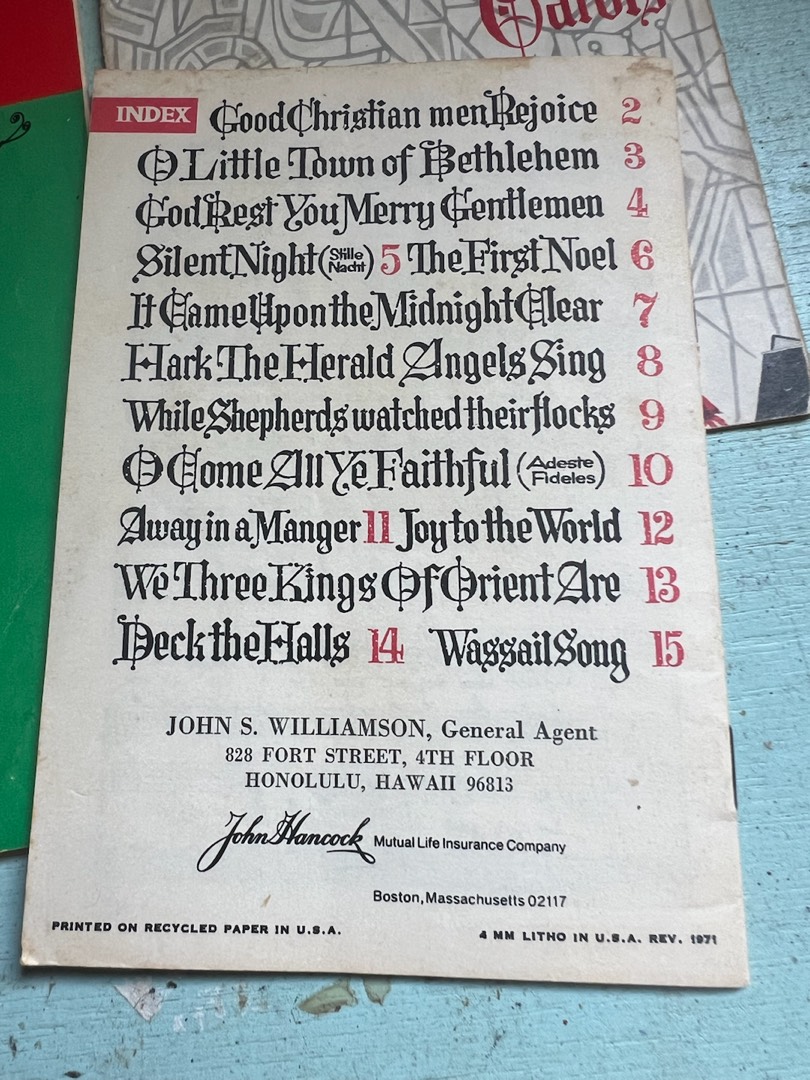 Carols
INDEX Good Christian men Rejoice 2
O Little Town of Bethlehem 3
God Rest You Merry Gentlemen 4
Silent Night (Stille Nacht) 5 The First Noel 6
It Came Upon the Midnight Clear 7
Hark The Herald Angels Sing 8
While Shepherds watched their flocks 9
O Come All Ye Faithful (Adeste Fideles) 10
Away in a Manger 11 Joy to the World 12
We Three Kings Of Orient Are 13
Deck the Halls 14 Wassail Song 15
JOHN S. WILLIAMSON, General Agent
828 FORT STREET, 4TH FLOOR
HONOLULU, HAWAII 96813
John Hancock Mutual Life Insurance Company
Boston, Massachusetts 02117
PRINTED ON RECYCLED PAPER IN U.S.A. 4 MM LITHO IN U.S.A. REV. 1971